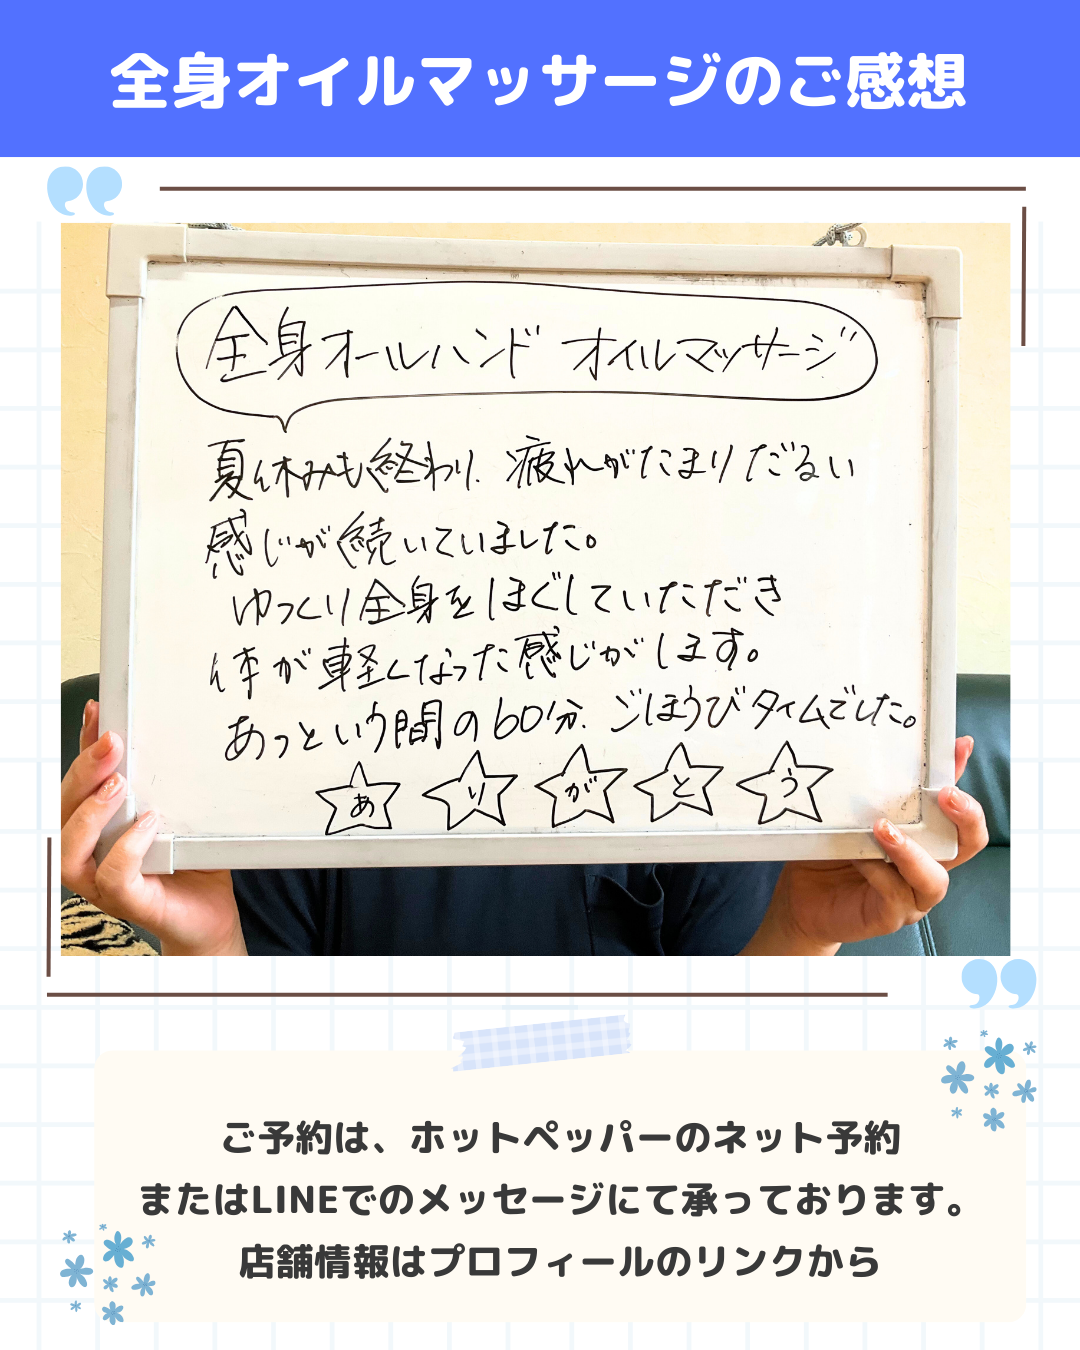 全身オイルマッサージのご感想
全身オールハンド オイルマッサージ
夏休みも終わり、疲れがたまりだるい
感じが続いていました。
ゆっくり全身をほぐしていただき
体が軽くなった感じがします。
あっという間の60分、ごほうびタイムでした。
ありがとう
ご予約は、ホットペッパーのネット予約
またはLINEでのメッセージにて承っております。
店舗情報はプロフィールのリンクから